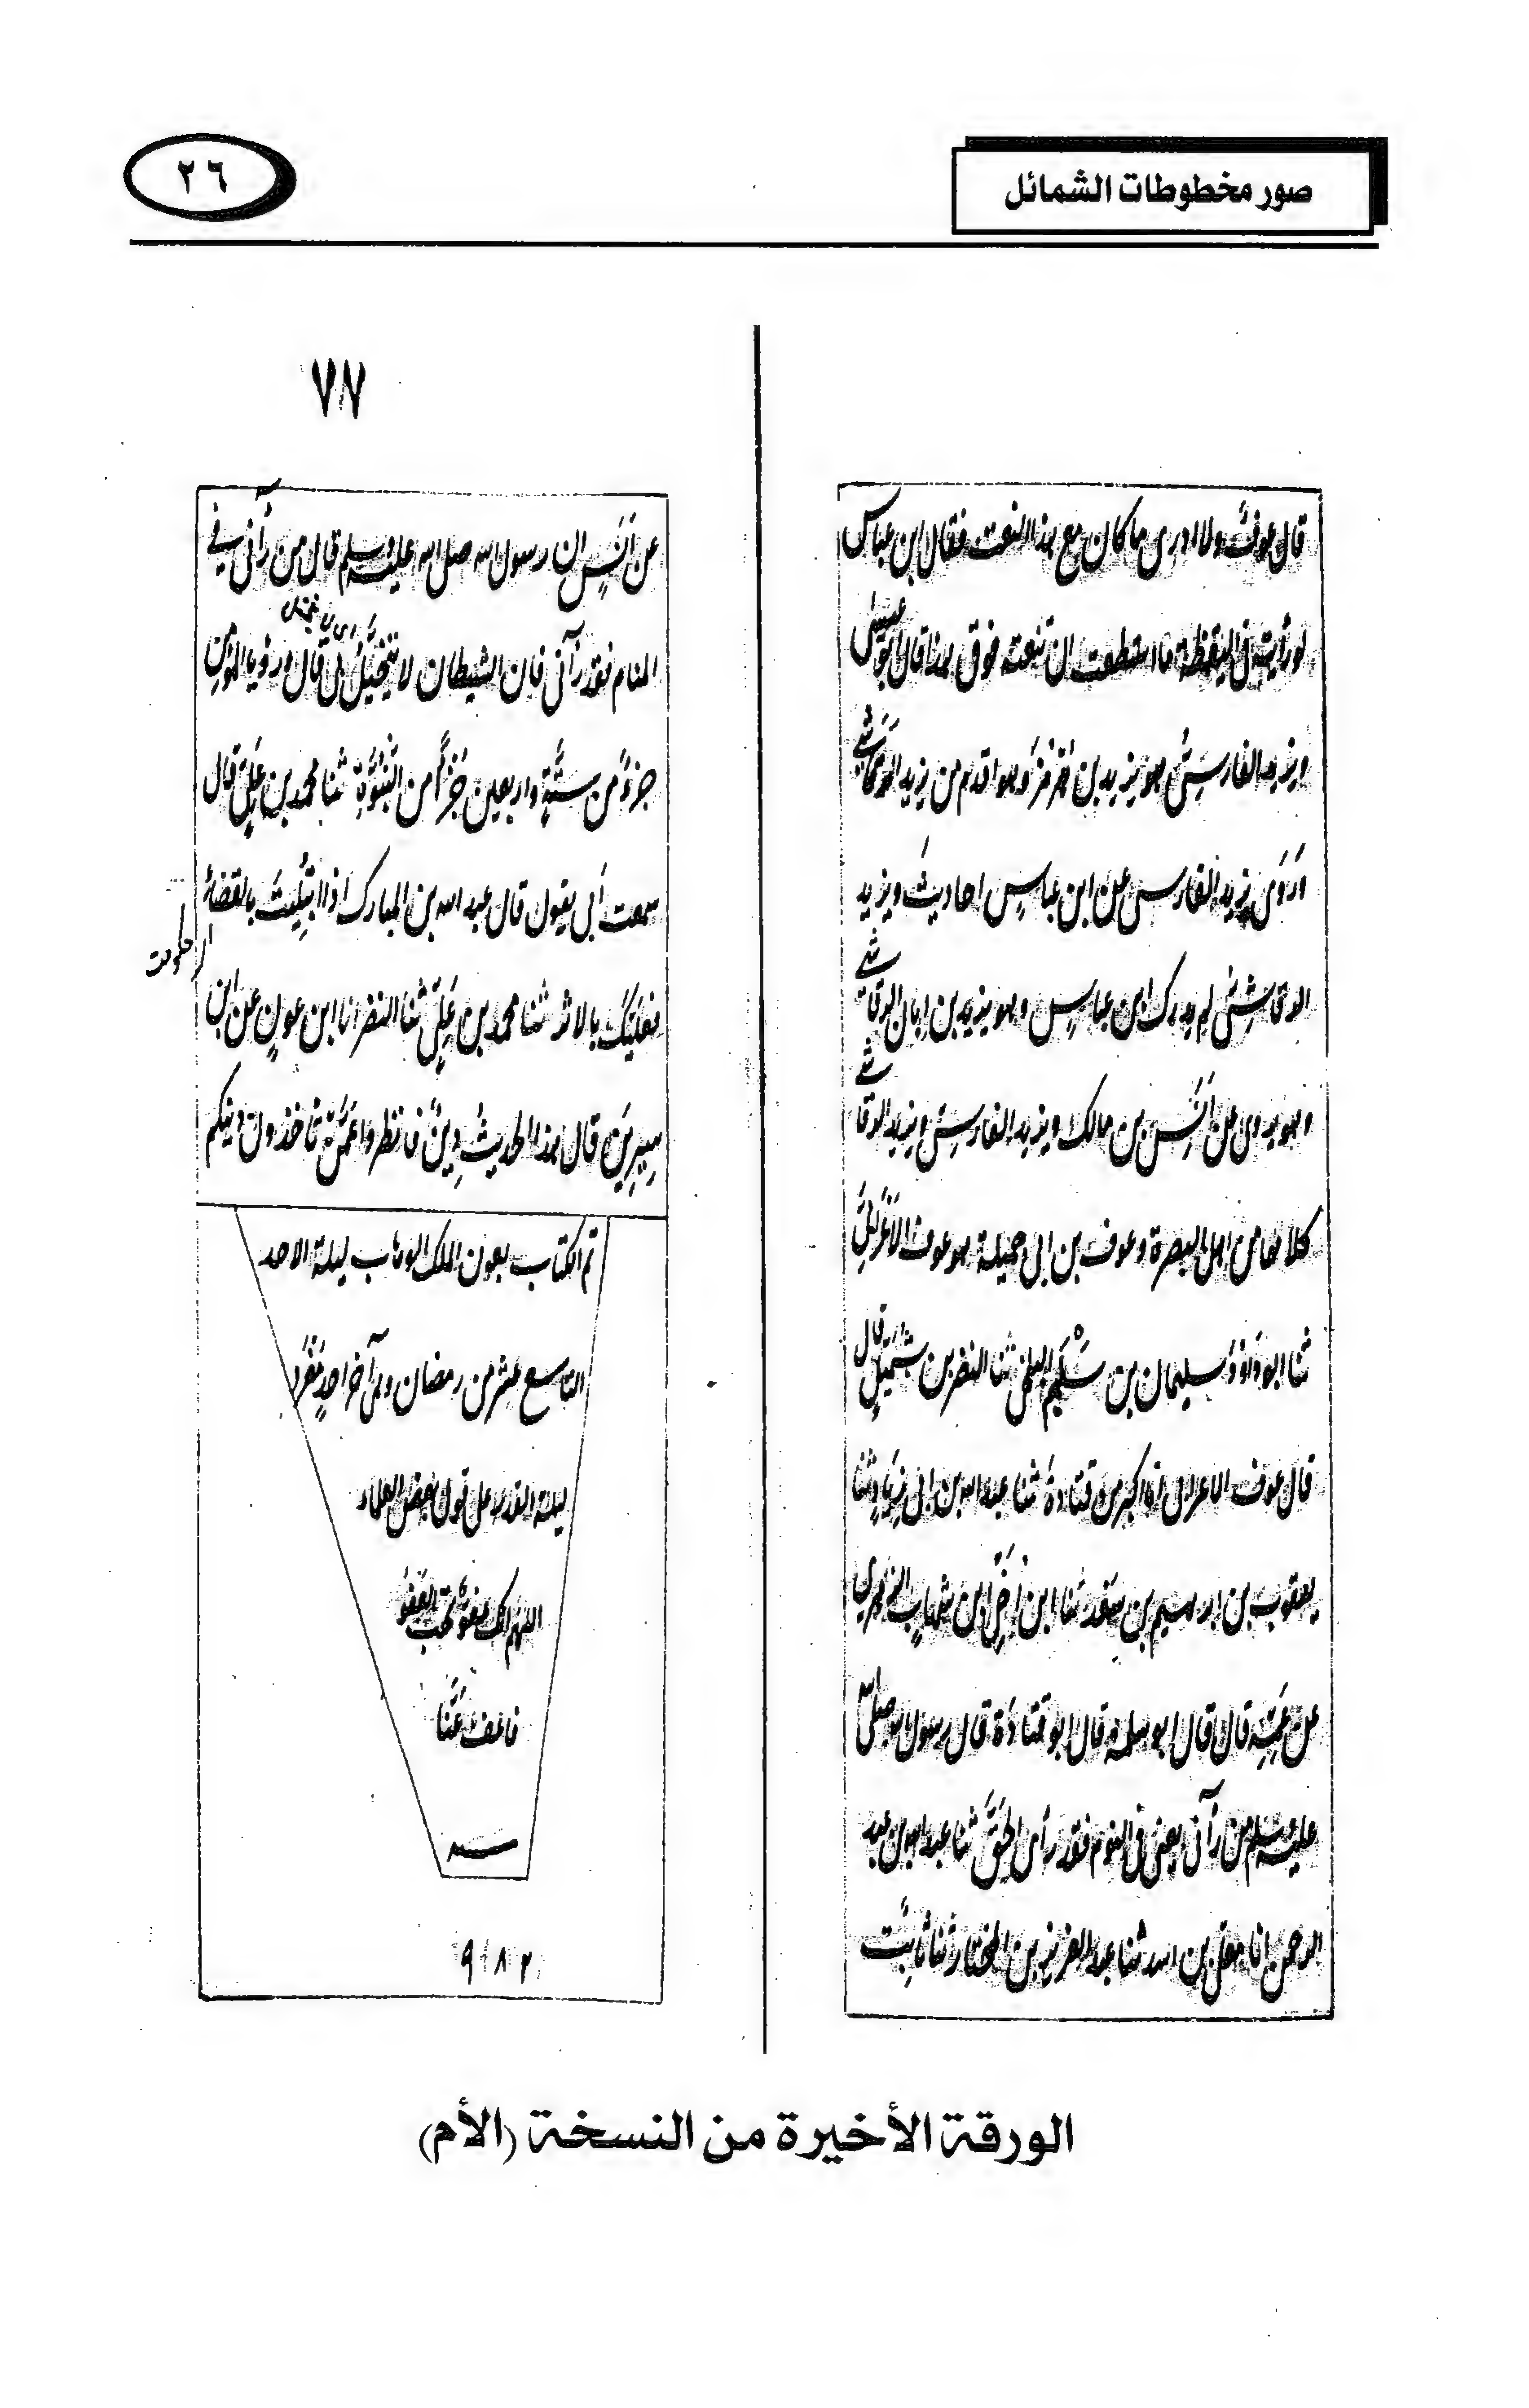 صور مخطوطات الشمائل
٢٦
قال عوف ولا ادرى ما كان مع هذا النعت فقال ابن عباس
لو رأيته فى اليقظة ما استطعت ان تنعته فوق هذا قال ابو عيسى
ويزيد الفارسى هو يزيد بن هرمز وهو اقدم من يزيد الرقاشى
وروى يزيد الفارسى عن ابن عباس احاديث ويزيد
الرقاشى لم يدرك ابن عباس وهو يزيد بن ابان الرقاشى
وهو يروى عن انس بن مالك ويزيد الفارسى ويزيد الرقاشى
كلاهما من اهل البصرة وعوف بن ابى جميلة هو عوف الاعرابى
ثنا ابو داود سليمان بن سلم البلخى ثنا النضر بن شميل قال
قال عوف الاعرابى انا اكبر من قتادة ثنا عبد الله بن ابى زياد ثنا
يعقوب بن ابرهيم بن سعد ثنا ابن اخى ابن شهاب الزهرى
عن عمه قال قال ابو سلمة قال ابو قتادة قال رسول الله صلى الله
عليه وسلم من رآنى يعنى فى النوم فقد رأى الحق ثنا عبد الله بن عبد
الرحمن انا معلى بن اسد ثنا عبد العزيز بن المختار ثنا ثابت
٧٧
عن انس ان رسول الله صلى الله عليه وسلم قال من رآنى فى
المنام فقد رآنى فان الشيطان لا يتخيل بى قال ورؤيا المؤمن
جزء من ستة واربعين جزءًا من النبوة ثنا محمد بن على قال
سمعت ابى يقول قال عبد الله بن المبارك اذا ابتليت بالقضاء
حكومت
فعليك بالاثر ثنا محمد بن على ثنا النضر انا ابن عون عن ابن
سيرين قال هذا الحديث دين فانظروا عمن تأخذون دينكم
تم الكتاب بعون الملك الوهاب ليلة الاحد
التاسع عشر من رمضان وهى آخر احد مفرد
ليلة القدر على قول بعض العلماء
اللهم انك عفو تحب العفو
فاعف عنا
٩٨٢
الورقة الأخيرة من النسخة (الأم)